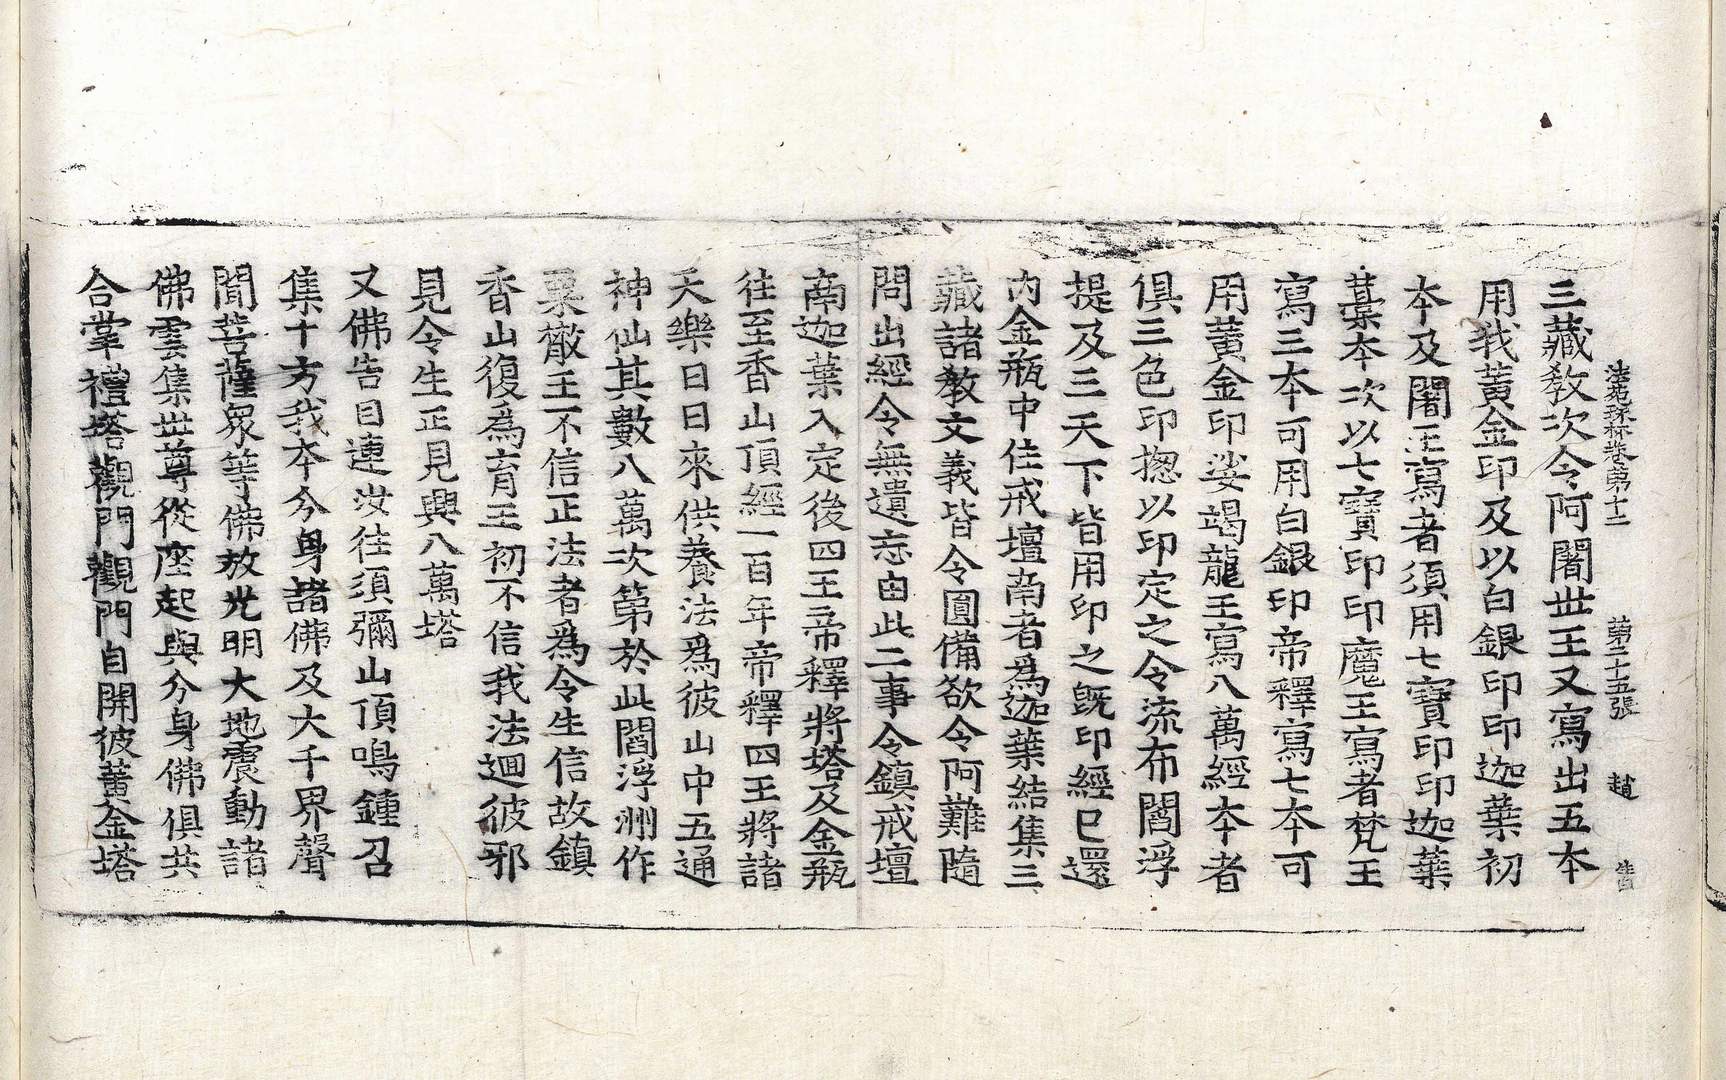 法苑珠林卷第十二 第二十五張 趙
三藏教次令阿闍世王又寫出五本
用我黃金印及以白銀印印迦葉初
本及闍王寫者須用七寶印印迦葉
葉本次以七寶印印魔王寫者梵王
寫三本可用白銀印帝釋寫七本可
用黃金印娑竭龍王寫八萬經本者
俱三色印揔以印定之令流布閻浮
提及三天下皆用印之旣印經已還
內金瓶中住戒壇南者爲迦葉結集三
藏諸教文義皆令圓備欲令阿難隨
問出經令無遺忘由此二事令鎮戒壇
南迦葉入定後四王帝釋將塔及金瓶
往至香山頂經一百年帝釋四王將諸
天樂日日來供養法爲彼山中五通
神仙其數八萬次第於此閻浮洲作
粟散王不信正法者爲令生信故鎮
香山復爲育王初不信我法迴彼邪
見令生正見興八萬塔
又佛告目連汝往須彌山頂鳴鍾召
集十方我本分身諸佛及大千界聲
聞菩薩衆等佛放光明大地震動諸
佛雲集世尊從座起與分身佛俱共
合掌禮塔觀門觀門自開彼黃金塔